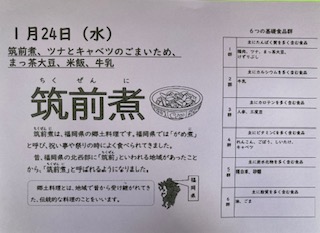 1月24日（水）
筑前煮、ツナとキャベツのごまいため、
まっ茶大豆、米飯、牛乳
ちくぜんに
筑前煮
筑前煮は、福岡県の郷土料理です。福岡県では「がめ煮」
と呼び、祝い事や祭りの時によく食べられてきました。
昔、福岡県の北西部に「筑前」といわれる地域があったこと
から、「筑前煮」と呼ばれるようになりました。
郷土料理とは、地域で昔から受け継がれてき
た、伝統的な料理のことをいいます。
福岡県
6つの基礎食品群
主にたんぱく質を多く含む食品
1群
鶏肉、ツナ、まっ茶大豆、
主にカルシウムを多く含む食品
2群
牛乳
主にカロテンを多く含む食品
3群
人参、三度豆
主にビタミンCを多く含む食品
4群
れんこん、ごぼう、しいたけ、
キャベツ
主に炭水化物を多く含む食品
5群
精白米、砂糖
主に脂質を多く含む食品
6群
油、ごま